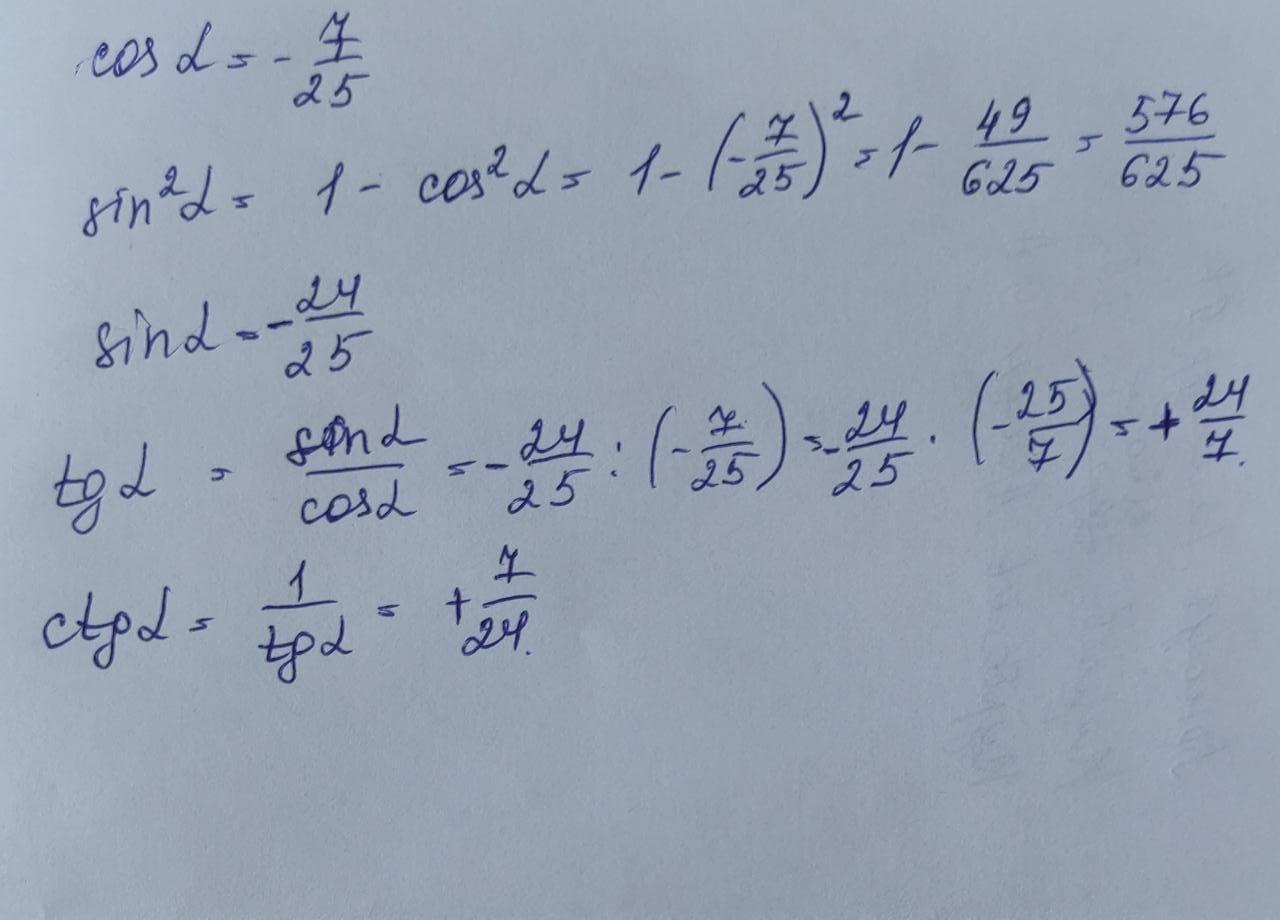 cos α = - 7/25
sin²α = 1 - cos²α = 1 - (-7/25)² = 1 - 49/625 = 576/625
sin α = - 24/25
tg α = sin α/cos α = - 24/25 : (- 7/25) = - 24/25 · (- 25/7) = + 24/7.
ctg α = 1/tg α = + 7/24.